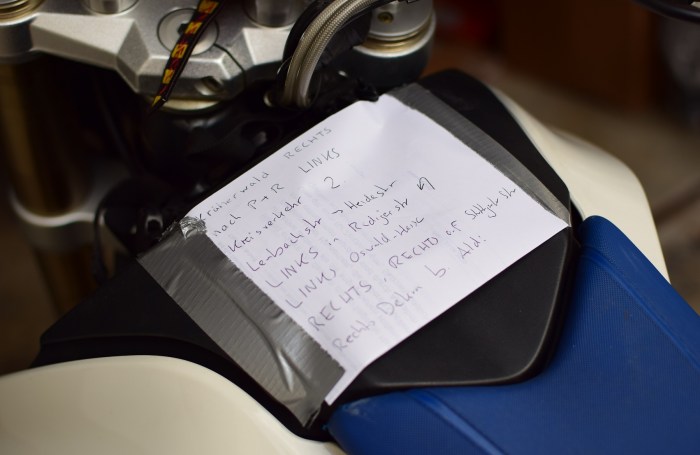 Kräherwald RECHTS
nach P+R LINKS
Kreisverkehr 2
Lenbachstr → Heidestr
LINKS in Rüdigerstr
LINKS Oswald-Hesse
RECHTS RECHTS auf Stuttgtstr
Rechts Dekra b Aldi